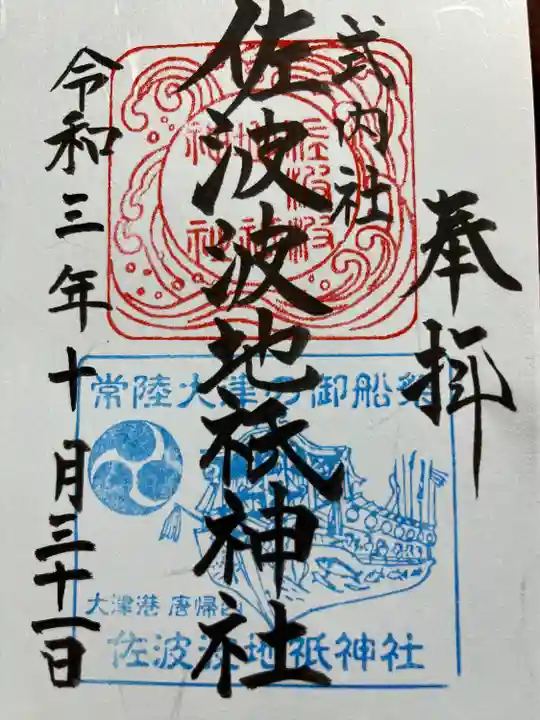 奉拝
式内社
佐波波地祇神社
令和三年十月三十一日
佐波波
地祇
神社
常陸大津の御船祭
大津港 唐帰山
佐波波地祇神社